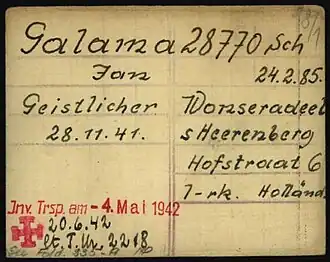 Galama 28770 Sch
Jan 24.2.85.
Geistlicher Wonseradeel
28.11.41. s'Heerenberg
Hofstraat 6
1-rk. Holländ.
Inv. Trsp. am - 4. Mai 1942
20.6.42
lt. T. Ur. 2218